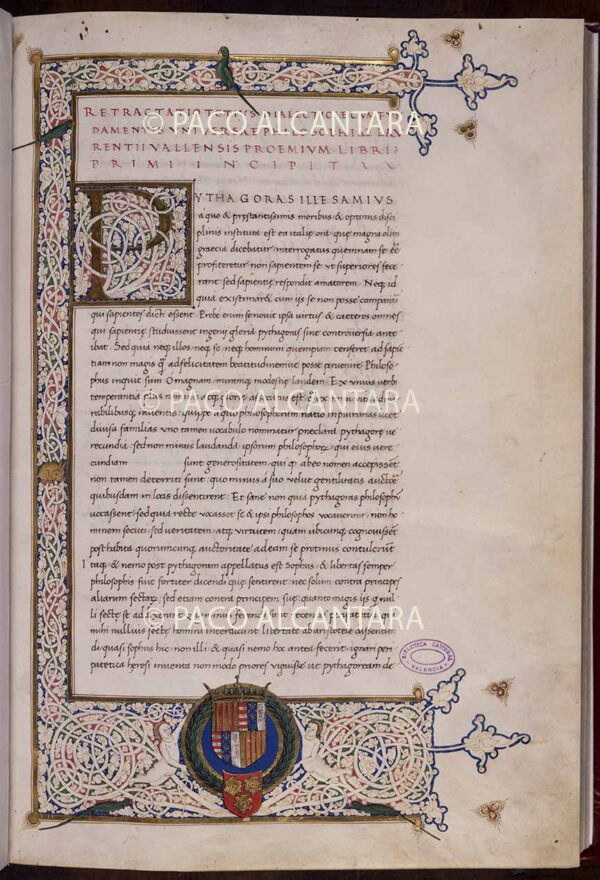 RETRACTATIO TOTIUS DIALECTICE CUM FUN
DAMENTIS UNIVERSAE PHILOSOPHIAE LAU
RENTII VALLENSIS PROEMIUM LIBRI
PRIMI INCIPIT
© PACO ALCANTARA
PYTHAGORAS ILLE SAMIUS
a quo & prestantissimis moribus & optimis disci
plinis instituta est ea italie ora que magna olim
graecia dicebatur interrogatus quemnam se ee
profiteretur non sapientem se ut superiores fece
rant sed sapientie respondit amatorem Neq id
quia existimaret cum ijs se non posse comparari
qui sapientes dicti essent Probe enim se novit ipsa virtus & caeteros omnes
qui sapientie studuissent ingenij gloria pythagoras sine controversia ante
ibat Sed quia neq illos neq se neq hominum quempiam censeret ad sapien
tiam non magis q ad felicitatem beatitudinemve posse pervenire Philoso
phus inquit sum O magnam miramq modestie laudem Ex unius verbi
temperantia plus
© PACO ALCANTARA
rabilibusq inventis quippe a quo philosophorum natio in plurimas licet
divisa familias uno tamen vocabulo nominatur preclara pythagore ve
recundia sed non minus laudanda ipsorum philosophorz qui eius vere
cundiam sunt generositatem qui q ab eo nomen accepissent
non tamen deterriti sunt quo minus a suo velut gentilitatis auctore
quibusdam in locis dissentirent Et sane non quia pythagoras philosophum
vocassent sed quia recte vocasset se & ipsi philosophos vocaverunt non ho
minem secuti sed veritatem atq virtutem quam ubicunq cognovissent
posthabita quorumcunq auctoritate ad eam se protinus contulerunt
Itaq & nemo post pythagoram appellatus est Sophus & libertas semper
philosophis fuit fortiter dicendi que sentirent nec solum contra principes
aliarum sectarz sed etiam contra principem sue quanto magis ijs q nul
li secte se
© PACO ALCANTARA
mihi nullius secte homini interdicunt libertate ab aristotele dissentien
di quasi sophus hic non illi & quasi nemo hoc antea fecerit ignari peri
patetica heresi inventa non modo priores viguisse ut pythagoream de
BIBLIOTECA CATEDRAL
VALENCIA